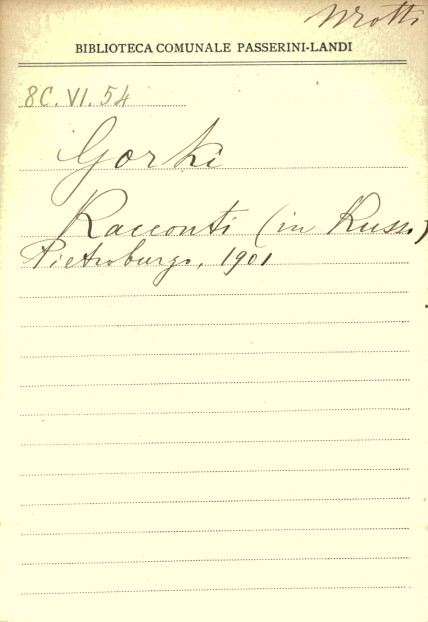 BIBLIOTECA COMUNALE PASSERINI-LANDI
8C. VI. 54
Gorki
Racconti (in Russ.)
Pietroburgo, 1901